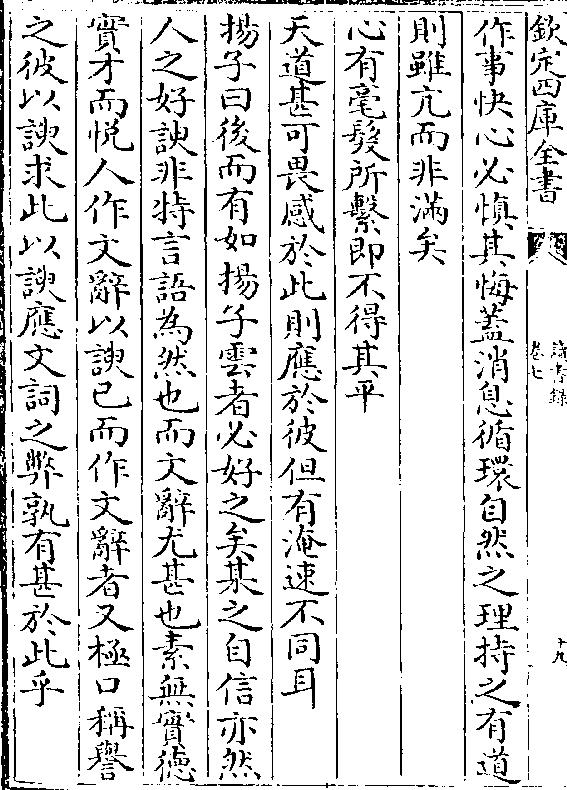 欽定四庫全書
讀書錄
卷七
十九
作事快心必慎其悔蓋消息循環自然之理持之有道
則雖亢而非滿矣
心有毫髮所繫即不得其平
天道甚可畏感於此則應於彼但有淹速不同耳
揚子曰後而有如揚子雲者必好之矣某之自信亦然
人之好諛非特言語為然也而文辭尤甚也素無實德
實才而悦人作文辭以諛已而作文辭者又極口稱譽
之彼以諛求此以諛應文詞之弊孰有甚於此乎